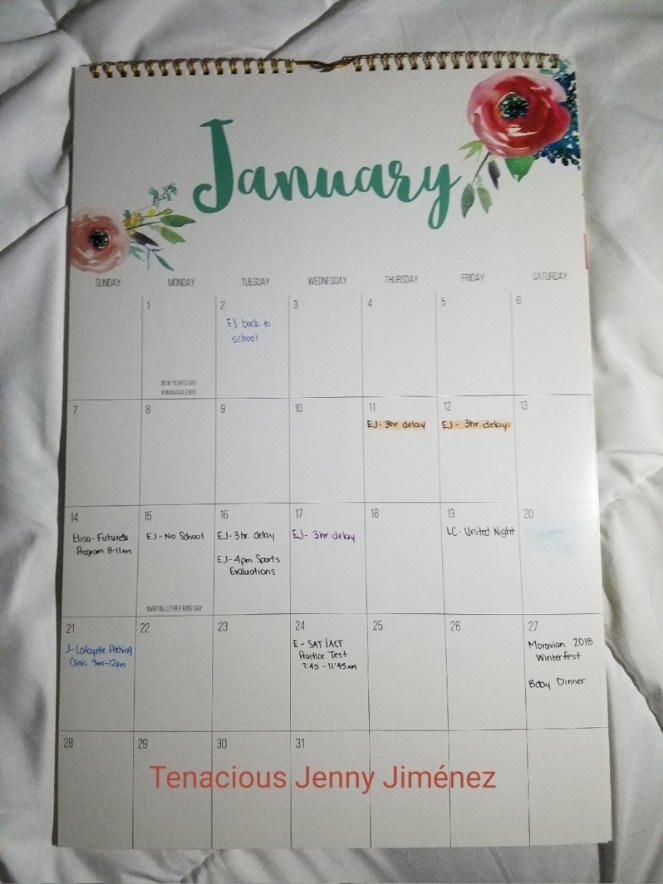 January
SUNDAY MONDAY TUESDAY WEDNESDAY THURSDAY FRIDAY SATURDAY
1 2 3 4 5 6
EJ back to
school
NEW YEAR'S DAY
KWANZAA ENDS
7 8 9 10 11 12 13
EJ- 3hr delay EJ - 3hr delay
14 15 16 17 18 19 20
Elisa- Futures
Program 8-11am
EJ - No School
EJ-3hr. delay
EJ-4pm Sports
Evaluations
EJ- 3hr delay
LC- United Night
MARTIN LUTHER KING DAY
21 22 23 24 25 26 27
J- Lafayette Pitching
Clinic 9am-12pm
E - SAT/ACT
Practice Test
7:45 - 11:45am
Moravian 2018
Winterfest
Baby Dinner
28 29 30 31
Tenacious Jenny Jiménez